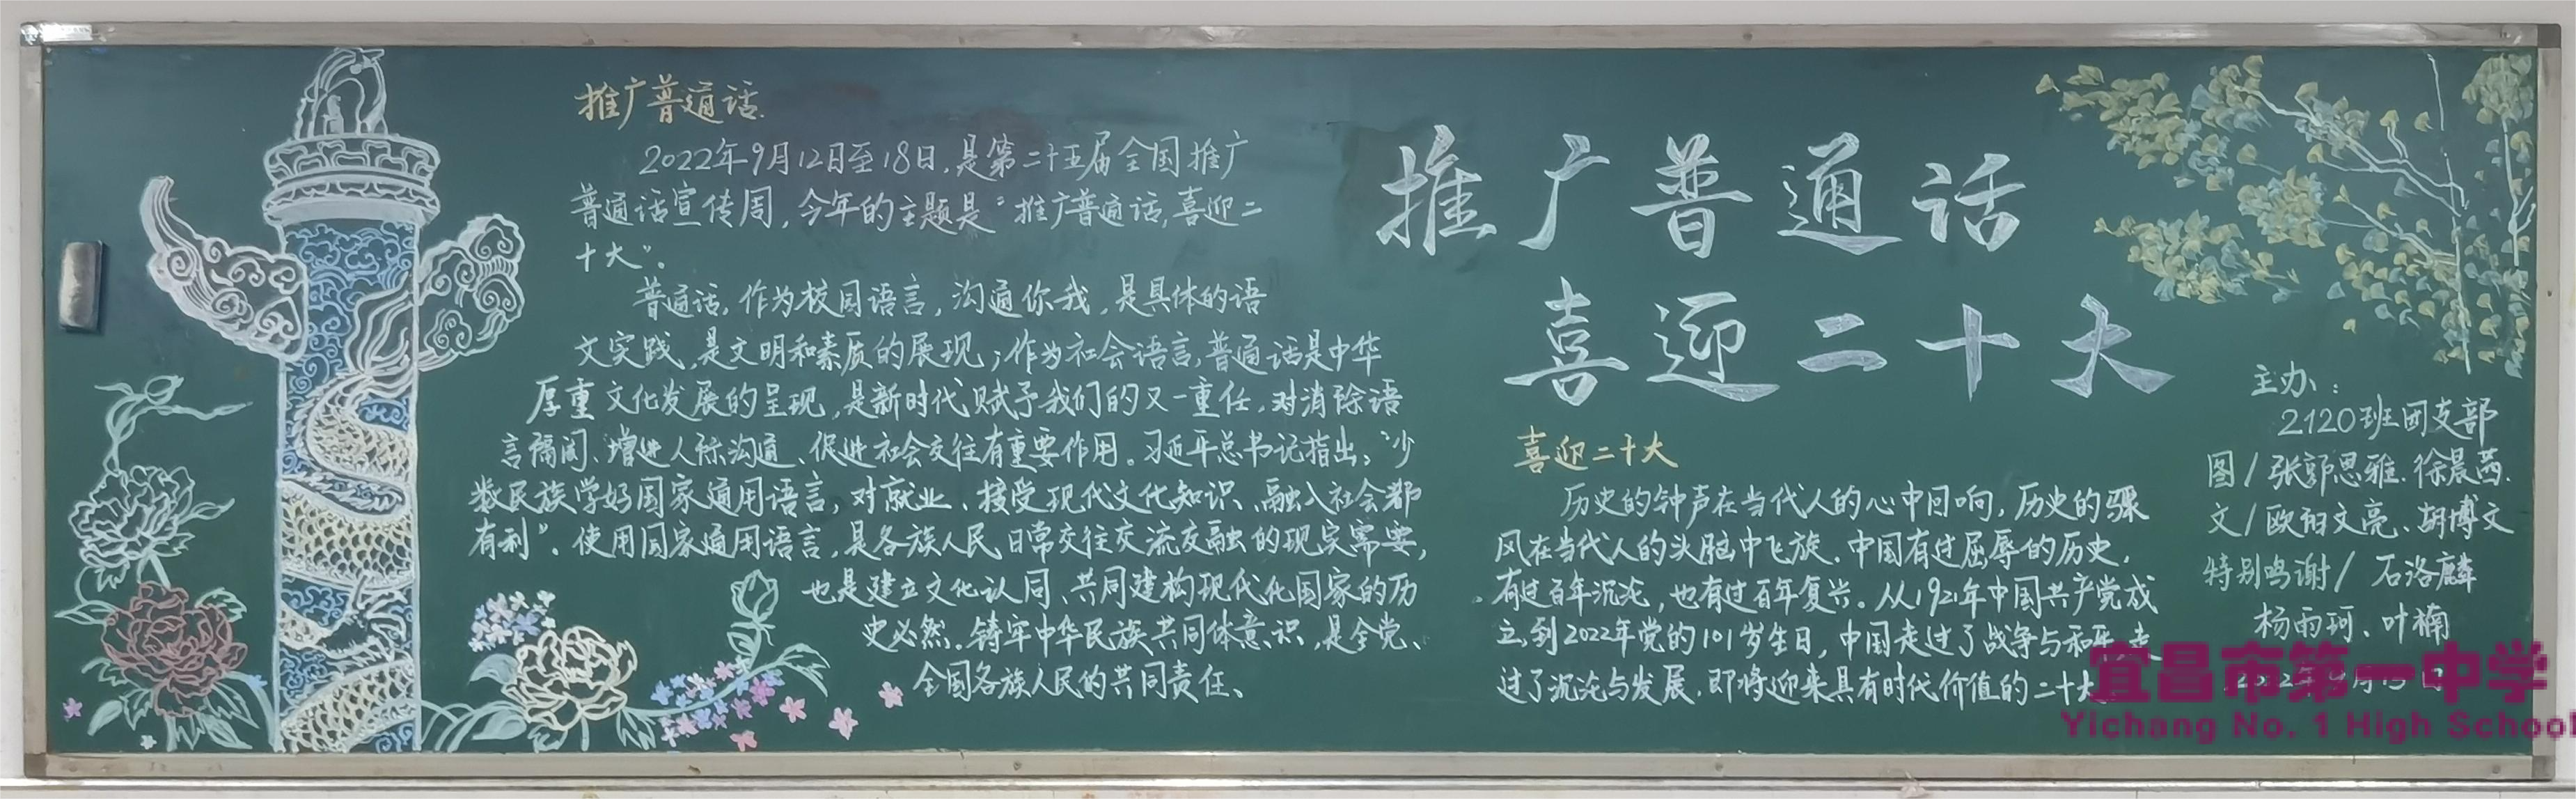 推广普通话
2022年9月12日至18日,是第二十五届全国推广
普通话宣传周,今年的主题是“推广普通话,喜迎二
十大”。
普通话,作为校园语言,沟通你我,是具体的语
文实践,是文明和素质的展现;作为社会语言,普通话是中华
厚重文化发展的呈现,是新时代赋予我们的又一重任,对消除语
言隔阂、增进人际沟通、促进社会交往有重要作用。习近平总书记指出:“少
数民族学好国家通用语言,对就业、接受现代文化知识、融入社会都
有利”。使用国家通用语言,是各族人民日常交往交流交融的现实需要,
也是建立文化认同、共同建构现代化国家的历
史必然。铸牢中华民族共同体意识,是全党、
全国各族人民的共同责任、
推广普通话
喜迎二十大
喜迎二十大
历史的钟声在当代人的心中回响,历史的骤
风在当代人的头脑中飞旋.中国有过屈辱的历史,
有过百年沉沦,也有过百年复兴。从1921年中国共产党成
立,到2022年党的101岁生日,中国走过了战争与和平,走
过了沉沦与发展,即将迎来具有时代价值的二十大
主办:
2120班团支部
图/张郭思雅.徐晨茜.
文/欧阳文亮、胡博文
特别鸣谢/石洛麟
杨雨珂、叶楠
宜昌市第一中学
Yichang No. 1 High School